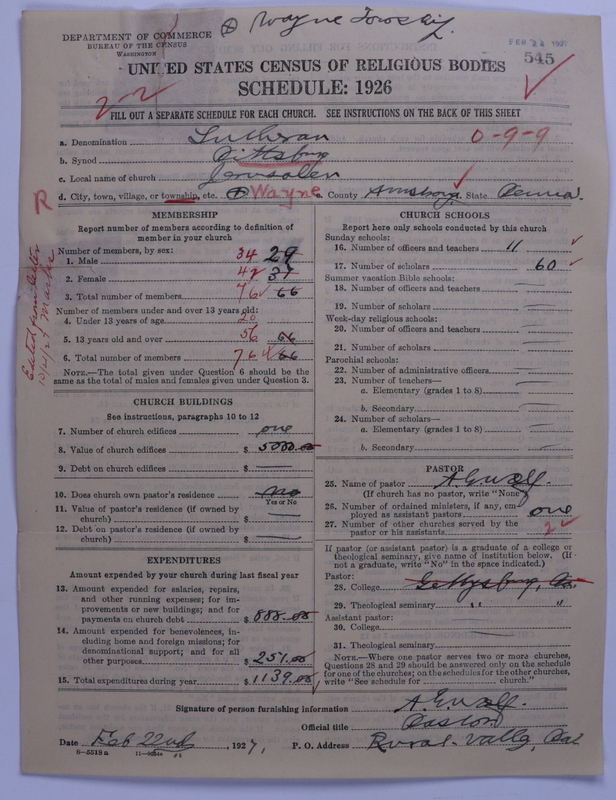 ⊕ Wayne Township.
DEPARTMENT OF COMMERCE
BUREAU OF THE CENSUS
WASHINGTON
FEB 24 1927
545
UNITED STATES CENSUS OF RELIGIOUS BODIES
SCHEDULE: 1926
2-2
FILL OUT A SEPARATE SCHEDULE FOR EACH CHURCH. SEE INSTRUCTIONS ON THE BACK OF THIS SHEET
a. Denomination Lutheran 0-9-9
b. Synod Pittsburg
c. Local name of church Jerusalem
R
d. City, town, village, or township, etc. ⊕ Wayne e. County State Penna.
MEMBERSHIP
Report number of members according to definition of
member in your church
Number of members, by sex:
1. Male 34 29
2. Female 42 37
3. Total number of members 76 66
Number of members under and over 13 years old:
4. Under 13 years of age 20
5. 13 years old and over 56 66
6. Total number of members 76 66
NOTE.—The total given under Question 6 should be
same as the total of males and females given under Question 3.
Edited from letter
CHURCH BUILDINGS
See instructions, paragraphs 10 to 12
7. Number of church edifices one
8. Value of church edifices $ 5000.00
9. Debt on church edifices $
10. Does church own pastor's residence No
Yes or No
11. Value of pastor's residence (if owned by
church) $
12. Debt on pastor's residence (if owned by
church) $
EXPENDITURES
Amount expended by your church during last fiscal year
13. Amount expended for salaries, repairs,
and other running expenses; for im-
provements or new buildings; and for
payments on church debt $ 888.00
14. Amount expended for benevolences, in-
cluding home and foreign missions; for
denominational support; and for all
other purposes $ 251.00
15. Total expenditures during year $ 1139.00
CHURCH SCHOOLS
Report here only schools conducted by this church
Sunday schools:
16. Number of officers and teachers 11
17. Number of scholars 60
Summer vacation Bible schools:
18. Number of officers and teachers
19. Number of scholars
Week-day religious schools:
20. Number of officers and teachers
21. Number of scholars
Parochial schools:
22. Number of administrative officers
23. Number of teachers—
a. Elementary (grades 1 to 8)
b. Secondary
24. Number of scholars—
a. Elementary (grades 1 to 8)
b. Secondary
PASTOR
25. Name of pastor
(If church has no pastor, write "None")
26. Number of ordained ministers, if any, em-
ployed as assistant pastors one
27. Number of other churches served by the
pastor or his assistants 2
If pastor (or assistant pastor) is a graduate of a college or
theological seminary, give name of institution below. (If
not a graduate, write "No" in the space indicated.)
Pastor:
28. College Gettysburg, Pa.
29. Theological seminary " "
Assistant pastor:
30. College
31. Theological seminary
NOTE.—Where one pastor serves two or more churches,
Questions 28 and 29 should be answered only on the schedule
for one of the churches; on the schedules for the other churches,
write "See schedule for church."
Signature of person furnishing information
Official title Pastor
Date Feb 22nd, 1927, P. O. Address Rural Valley, Pa
8-5518 a